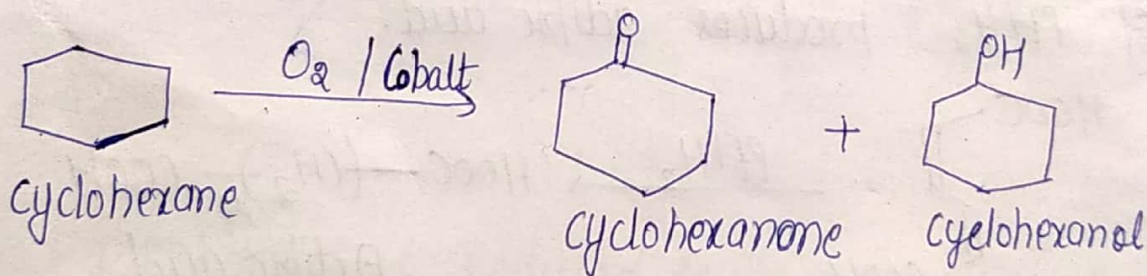 O₂ / Cobalt
O
OH
+
cyclohexane
cyclohexanone
cyclohexanol